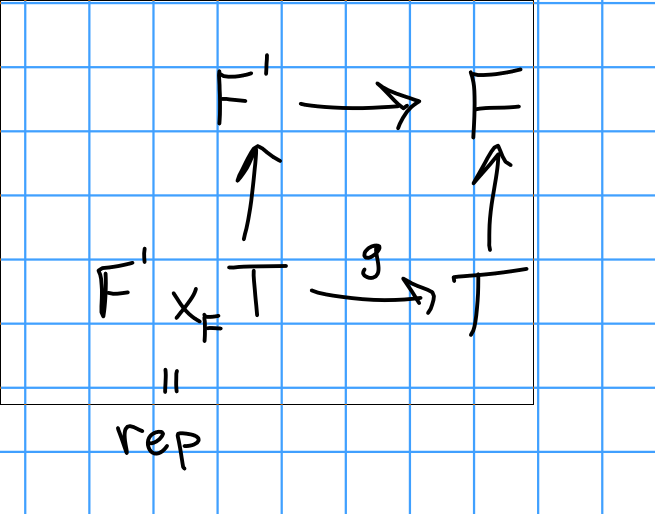 F' → F
g
F' ×_F T → T
||
rep